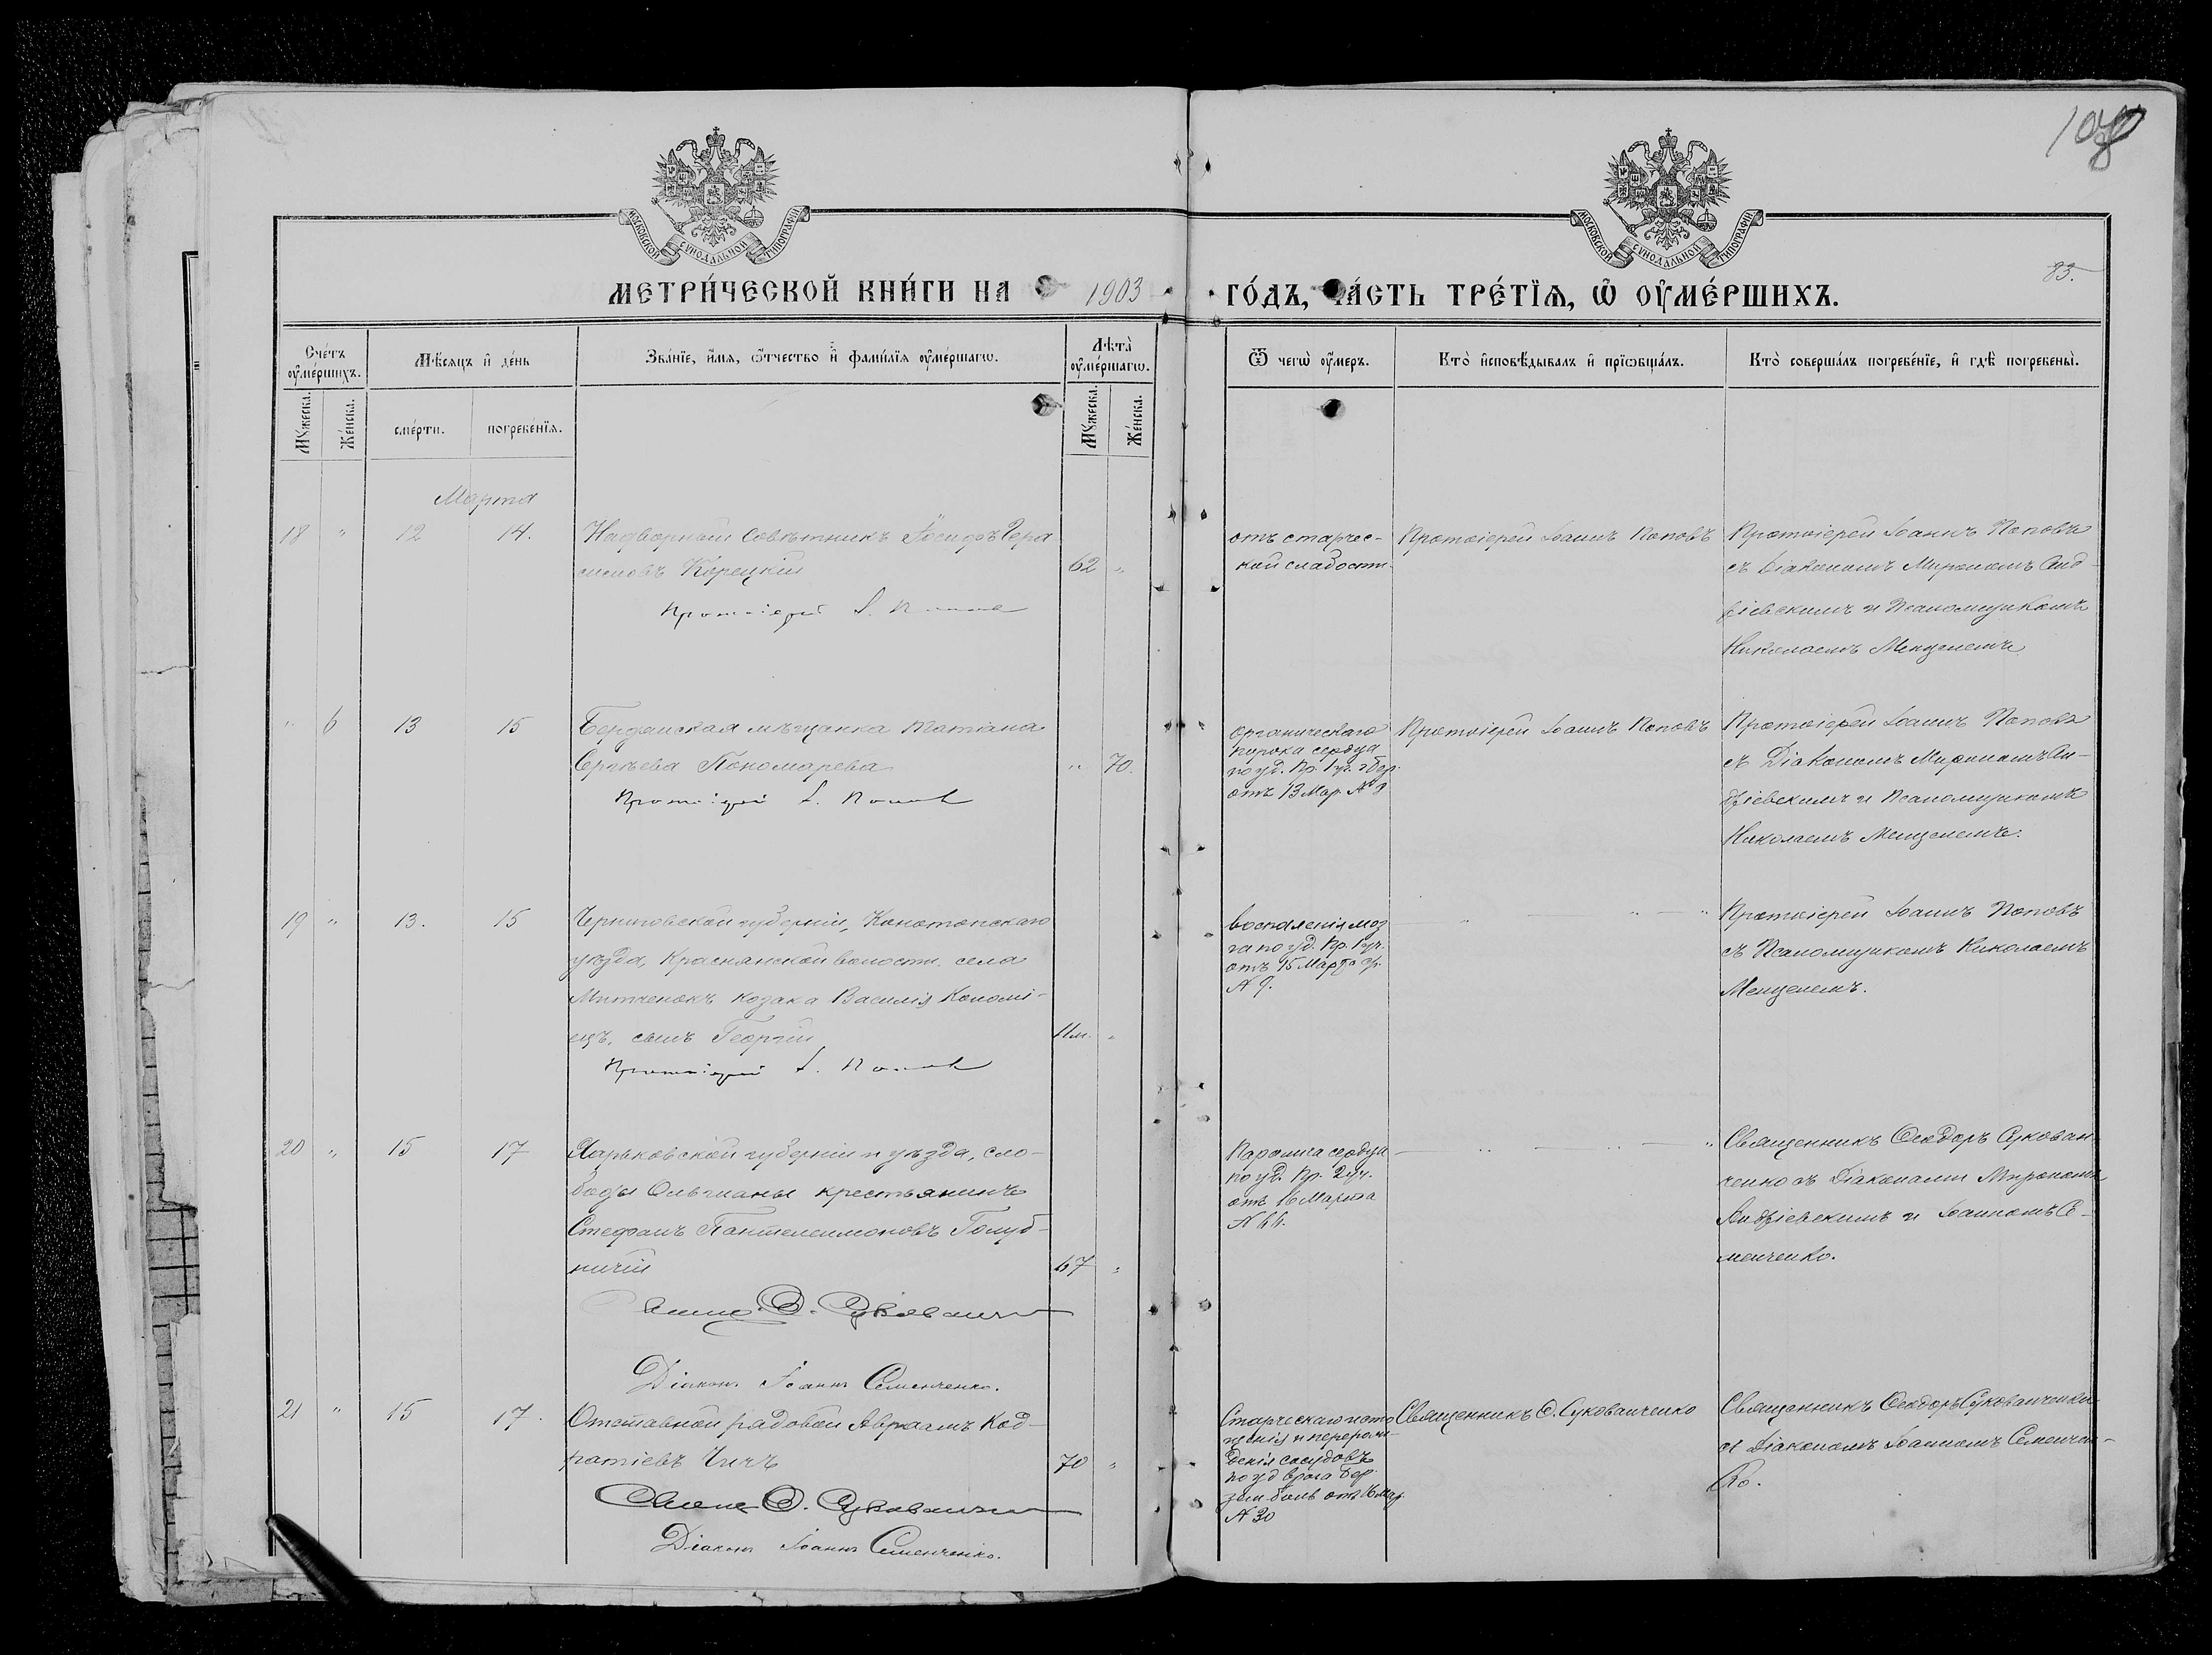 108
МОСКОВСКОЙ СѴНОДАЛЬНОЙ ТИПОГРАФІИ
МОСКОВСКОЙ СѴНОДАЛЬНОЙ ТИПОГРАФІИ
МЕТРИ́ЧЕСКОЙ КНИ́ГИ НА 1903 ГО́ДЪ, ЧА́СТЬ ТРЕ́ТЇѦ, Ѽ ОУ҆МЕ́РШИХЪ.
83.
Сче́тъ оу҆ме́ршихъ.
Мѣ́сѧцъ и҆ де́нь
Зва́нїе, и҆́мѧ, ѻ҆́тчество и҆ фами́лїѧ оу҆ме́ршагѡ.
Лѣ́та оу҆ме́ршагѡ.
Ѿ чегѡ̀ оу҆́меръ.
Кто̀ и҆сповѣ́дывалъ и҆ прїѡбща́лъ.
Кто̀ соверша́лъ погребе́нїе, и҆ гдѣ̀ погребены̀.
Мꙋ́жеска.
Же́нска.
сме́рти.
погребе́нїѧ.
Мꙋ́жеска.
Же́нска.
Марта
18 " 12 14.
Надворный Совѣтникъ Іосифъ Гера
симовъ Корецкій
62 "
Протоіерей І. Поповъ
отъ старчес-
кой слабости.
Протоіерей Іоаннъ Поповъ
Протоіерей Іоаннъ Поповъ
съ Діакономъ Мирономъ Анд-
ріевскимъ и Псаломщикомъ
Николаемъ Менцелемъ
" 6 13 15
Бердянская мѣщанка Татіана
Сергѣева Пономарева
" 70.
Протоіерей І. Поповъ
органическаго
порока сердца
по уд. Вр. 1 уч. г. Бер.
отъ 13 Мар. № 8
Протоіерей Іоаннъ Поповъ
Протоіерей Іоаннъ Поповъ
съ Діакономъ Мирономъ Ан-
дріевскимъ и Псаломщикомъ
Николаемъ Менцелемъ.
19 " 13. 15
Черниговской губерніи, Конотопскаго
уѣзда, Краснянской волости, села
Митченокъ козака Василія Коломі-
ецъ, сынъ Георгій
11 м. "
Протоіерей І. Поповъ
воспаленія моз
га по уд. Вр. 1 уч.
отъ 15 Марта
№ 9.
" "
Протоіерей Іоаннъ Поповъ
съ Псаломщикомъ Николаемъ
Менцелемъ.
20 " 15 17
Харьковской губерніи и уѣзда, сло-
боды Ольшаны крестьянинъ
Стефанъ Пантелеимоновъ Голуб-
ничій
67 "
Свящ. Ѳ. Сукованч
Діаконъ Іоаннъ Семенченко.
Паралича сердца
по уд. Вр. 2 уч.
отъ 16 Марта
№ 44.
" "
Священникъ Ѳеодоръ Сукован-
ченко съ Діаконами Мирономъ
Андріевскимъ и Іоанномъ Се-
менченко.
21 " 15 17.
Отставной рядовой Авраамъ Код-
ратіевъ Чичъ
70 "
Свящ. Ѳ. Сукованч
Діаконъ Іоаннъ Семенченко.
Старческаго исто
щенія и перерож-
денія сосудовъ
по уд врача Бер.
зем. больн. отъ 16 мар.
№ 30
Священникъ Ѳ. Сукованченко
Священникъ Ѳеодоръ Сукованченко
съ Діакономъ Іоанномъ Семенчен-
ко.